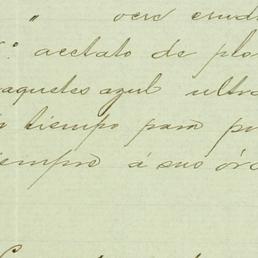 " verde
" acetato de plo
aquetes azul ultra
tiempo para p
iempre á sus órd